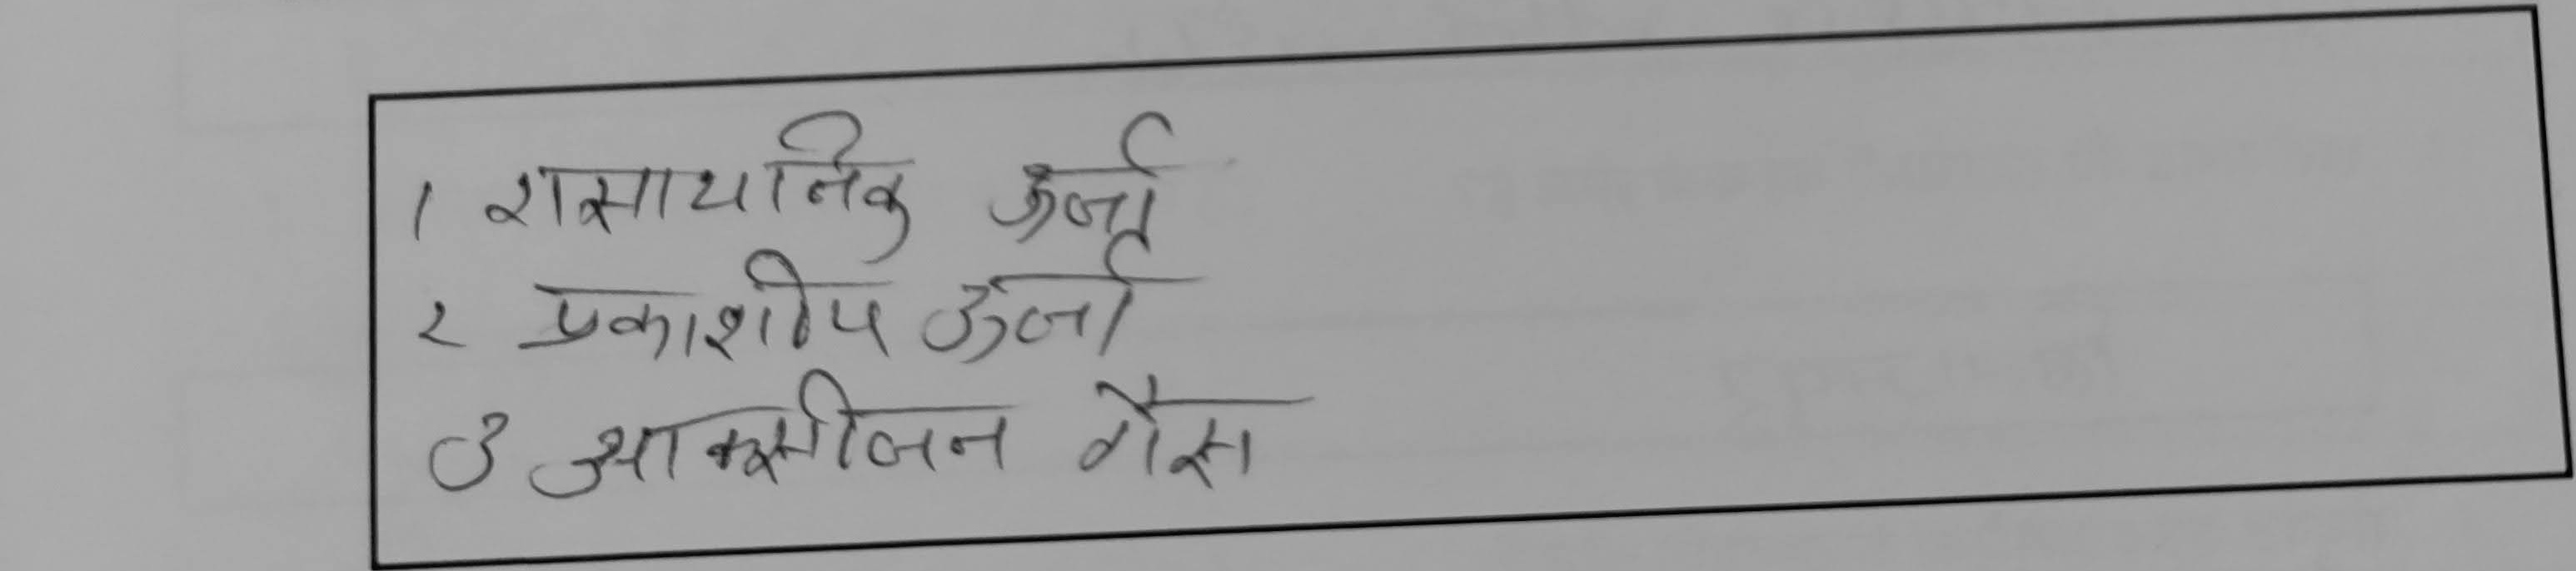 1 रासायनिक ऊर्जा
२ प्रकाशीय ऊर्जा
3 आक्सीजन गैस